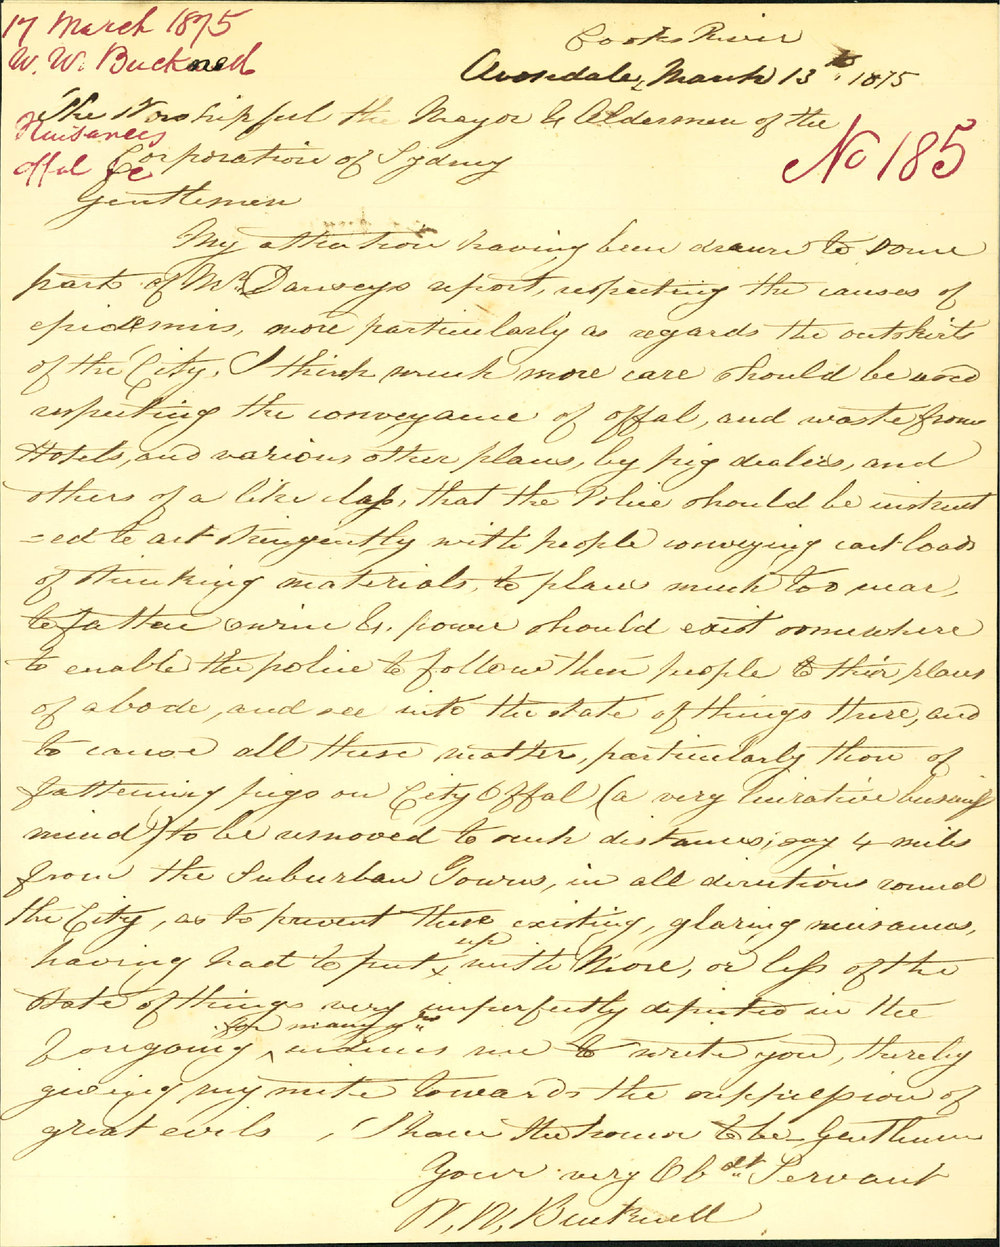 17 March 1875
W. W. Bucknell
Nuisances
offal &c
No 185
Cooks River
Avondale, March 13th 1875
The Worshipful the Mayor & Aldermen of the
Corporation of Sydney
Gentlemen
My attention having been drawn to some
part of Mr Dansey's report, respecting the causes of
epidemics, more particularly as regards the outskirts
of the City, I think much more care should be used
respecting the conveyance of offal, and waste from
Hotels, and various other places, by pig dealers, and
others of a like class, that the Police should be instruct
=ed to act stringently with people conveying cart loads
of stinking materials, to places much too near,
to fatten swine &. power should exist somewhere
to enable the police to follow these people to their places
of abode, and see into the state of things there, and
to cause all these matters, particularly those of
fattening pigs on City Offal (a very lucrative business
mind) to be removed to such distances; say 4 miles
from the Suburban Towns, in all directions round
the City, as to prevent these existing, glaring nuisances,
having had to put up with More, or less of the
state of things very imperfectly depicted in the
foregoing for many yrs induces me to write you, thereby
giving my mite towards the suppression of
great evils, I have the honor to be Gentlemen
Your very Obdt Servant
W. W, Bucknell